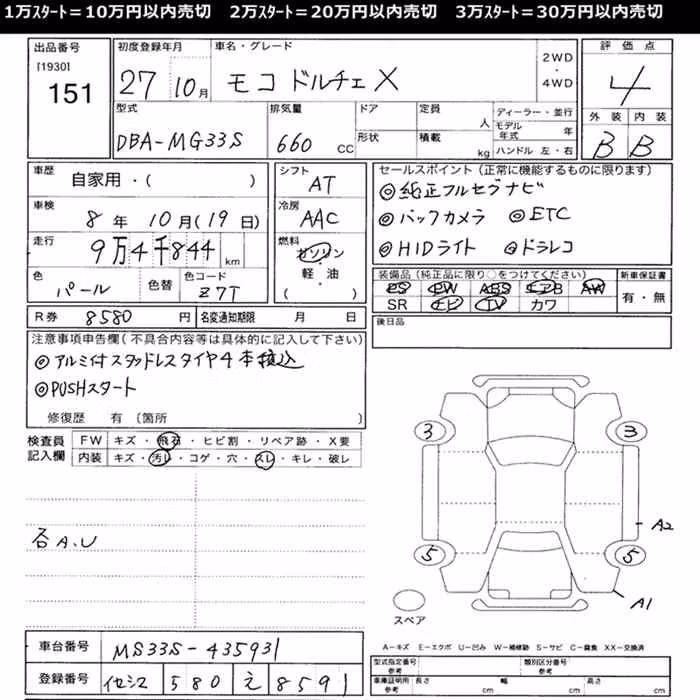 1万ｽﾀｰﾄ＝10万円以内売切　2万ｽﾀｰﾄ＝20万円以内売切　3万ｽﾀｰﾄ＝30万円以内売切
出品番号
[1930]
151
初度登録年月
27 10月
車名・グレード
モコ ドルチェX
2WD
・
4WD
評価点
4
型式
DBA-MG33S
排気量
660 CC
ドア
形状
定員
人
積載
kg
ディーラー・並行
モデル
年式
年
ハンドル 左・右
外装 内装
B B
車歴
自家用・( )
車検
8年 10月(19日)
走行
9万4千844 km
色
パール
色替
色コード
Z7T
シフト
AT
冷房
AAC
燃料
ガソリン
軽・油
( )
セールスポイント(正常に機能するものに限ります)
◎純正フルセグナビ
◎バックカメラ ◎ETC
◎HIDライト ◎ドラレコ
装備品(純正品に限り○をつけてください)
PS PW ABS エアB AW
SR ナビ TV カワ
新車保証書
有・無
R券 8580 円 名変通知期限 月 日
後日品
注意事項申告欄(不具合内容等は具体的に記入して下さい)
◎アルミ付スタッドレスタイヤ4本積込
◎PUSHスタート
修復歴 有 〔箇所 〕
検査員
記入欄
FW キズ・飛石・ヒビ割・リペア跡・X要
内装 キズ・汚レ・コゲ・穴・スレ・キレ・破レ
各A.U
3 3
A2
5 5
A1
スペア
A－キズ E－エクボ U－凹み W－補修跡 S－サビ C－腐食 XX－交換済
車台番号 MS33S-435931
登録番号 580 え 8591
型式指定番号
参考
類別区分番号
参考
車庫証明用
参考
長さ cm 幅 cm 高さ cm